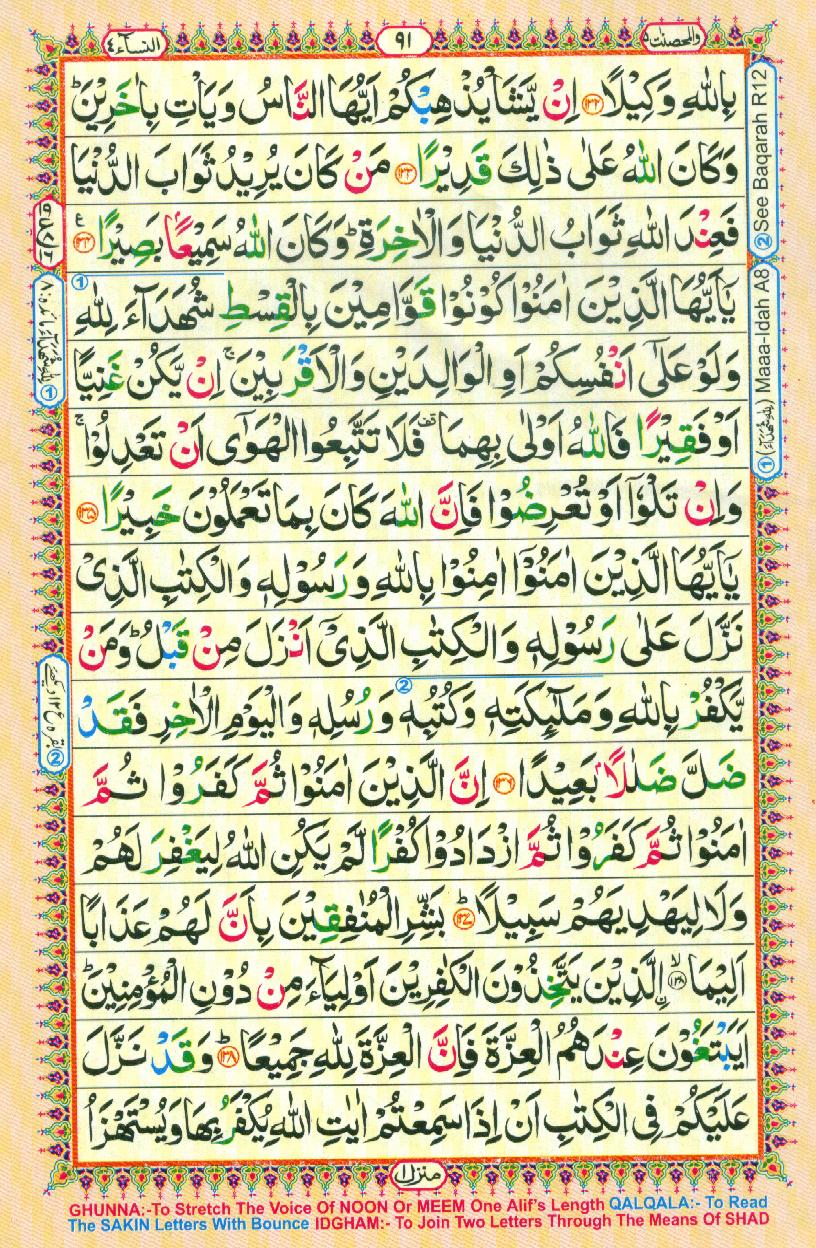 النسآء ٤
٩١
والمحصنت ٥
بِاللّٰهِ وَكِيْلًا ﴿۱۳۲﴾ اِنْ يَّشَاْ يُذْهِبْكُمْ اَيُّهَا النَّاسُ وَيَاْتِ بِاٰخَرِيْنَ ؕ
وَكَانَ اللّٰهُ عَلٰى ذٰلِكَ قَدِيْرًا ﴿۱۳۳﴾ مَنْ كَانَ يُرِيْدُ ثَوَابَ الدُّنْيَا
فَعِنْدَ اللّٰهِ ثَوَابُ الدُّنْيَا وَالْاٰخِرَةِ ؕ وَكَانَ اللّٰهُ سَمِيْعًۢا بَصِيْرًا ﴿۱۳۴﴾
يٰۤاَيُّهَا الَّذِيْنَ اٰمَنُوْا كُوْنُوْا قَوَّامِيْنَ بِالْقِسْطِ شُهَدَآءَ لِلّٰهِ
وَلَوْ عَلٰۤى اَنْفُسِكُمْ اَوِ الْوَالِدَيْنِ وَالْاَقْرَبِيْنَ ۚ اِنْ يَّكُنْ غَنِيًّا
اَوْ فَقِيْرًا فَاللّٰهُ اَوْلٰى بِهِمَا ۫ فَلَا تَتَّبِعُوا الْهَوٰۤى اَنْ تَعْدِلُوْا ۚ
وَاِنْ تَلْوٗۤا اَوْ تُعْرِضُوْا فَاِنَّ اللّٰهَ كَانَ بِمَا تَعْمَلُوْنَ خَبِيْرًا ﴿۱۳۵﴾
يٰۤاَيُّهَا الَّذِيْنَ اٰمَنُوْۤا اٰمِنُوْا بِاللّٰهِ وَرَسُوْلِهٖ وَالْكِتٰبِ الَّذِىْ
نَزَّلَ عَلٰى رَسُوْلِهٖ وَالْكِتٰبِ الَّذِىْۤ اَنْزَلَ مِنْ قَبْلُ ؕ وَمَنْ
يَّكْفُرْ بِاللّٰهِ وَمَلٰٓئِكَتِهٖ وَكُتُبِهٖ وَرُسُلِهٖ وَالْيَوْمِ الْاٰخِرِ فَقَدْ
ضَلَّ ضَلٰلًۢا بَعِيْدًا ﴿۱۳۶﴾ اِنَّ الَّذِيْنَ اٰمَنُوْا ثُمَّ كَفَرُوْا ثُمَّ
اٰمَنُوْا ثُمَّ كَفَرُوْا ثُمَّ ازْدَادُوْا كُفْرًا لَّمْ يَكُنِ اللّٰهُ لِيَغْفِرَ لَهُمْ
وَلَا لِيَهْدِيَهُمْ سَبِيْلًا ؕ﴿۱۳۷﴾ بَشِّرِ الْمُنٰفِقِيْنَ بِاَنَّ لَهُمْ عَذَابًا
اَلِيْمًا ۙ﴿۱۳۸﴾ الَّذِيْنَ يَتَّخِذُوْنَ الْكٰفِرِيْنَ اَوْلِيَآءَ مِنْ دُوْنِ الْمُؤْمِنِيْنَ ؕ
اَيَبْتَغُوْنَ عِنْدَهُمُ الْعِزَّةَ فَاِنَّ الْعِزَّةَ لِلّٰهِ جَمِيْعًا ؕ﴿۱۳۹﴾ وَقَدْ نَزَّلَ
عَلَيْكُمْ فِى الْكِتٰبِ اَنْ اِذَا سَمِعْتُمْ اٰيٰتِ اللّٰهِ يُكْفَرُ بِهَا وَيُسْتَهْزَاُ
منزل ١
② See Baqarah R12
① (للّٰه شهدآء) Maaa-Idah A8
GHUNNA:-To Stretch The Voice Of NOON Or MEEM One Alif's Length QALQALA:- To Read
The SAKIN Letters With Bounce IDGHAM:- To Join Two Letters Through The Means Of SHAD